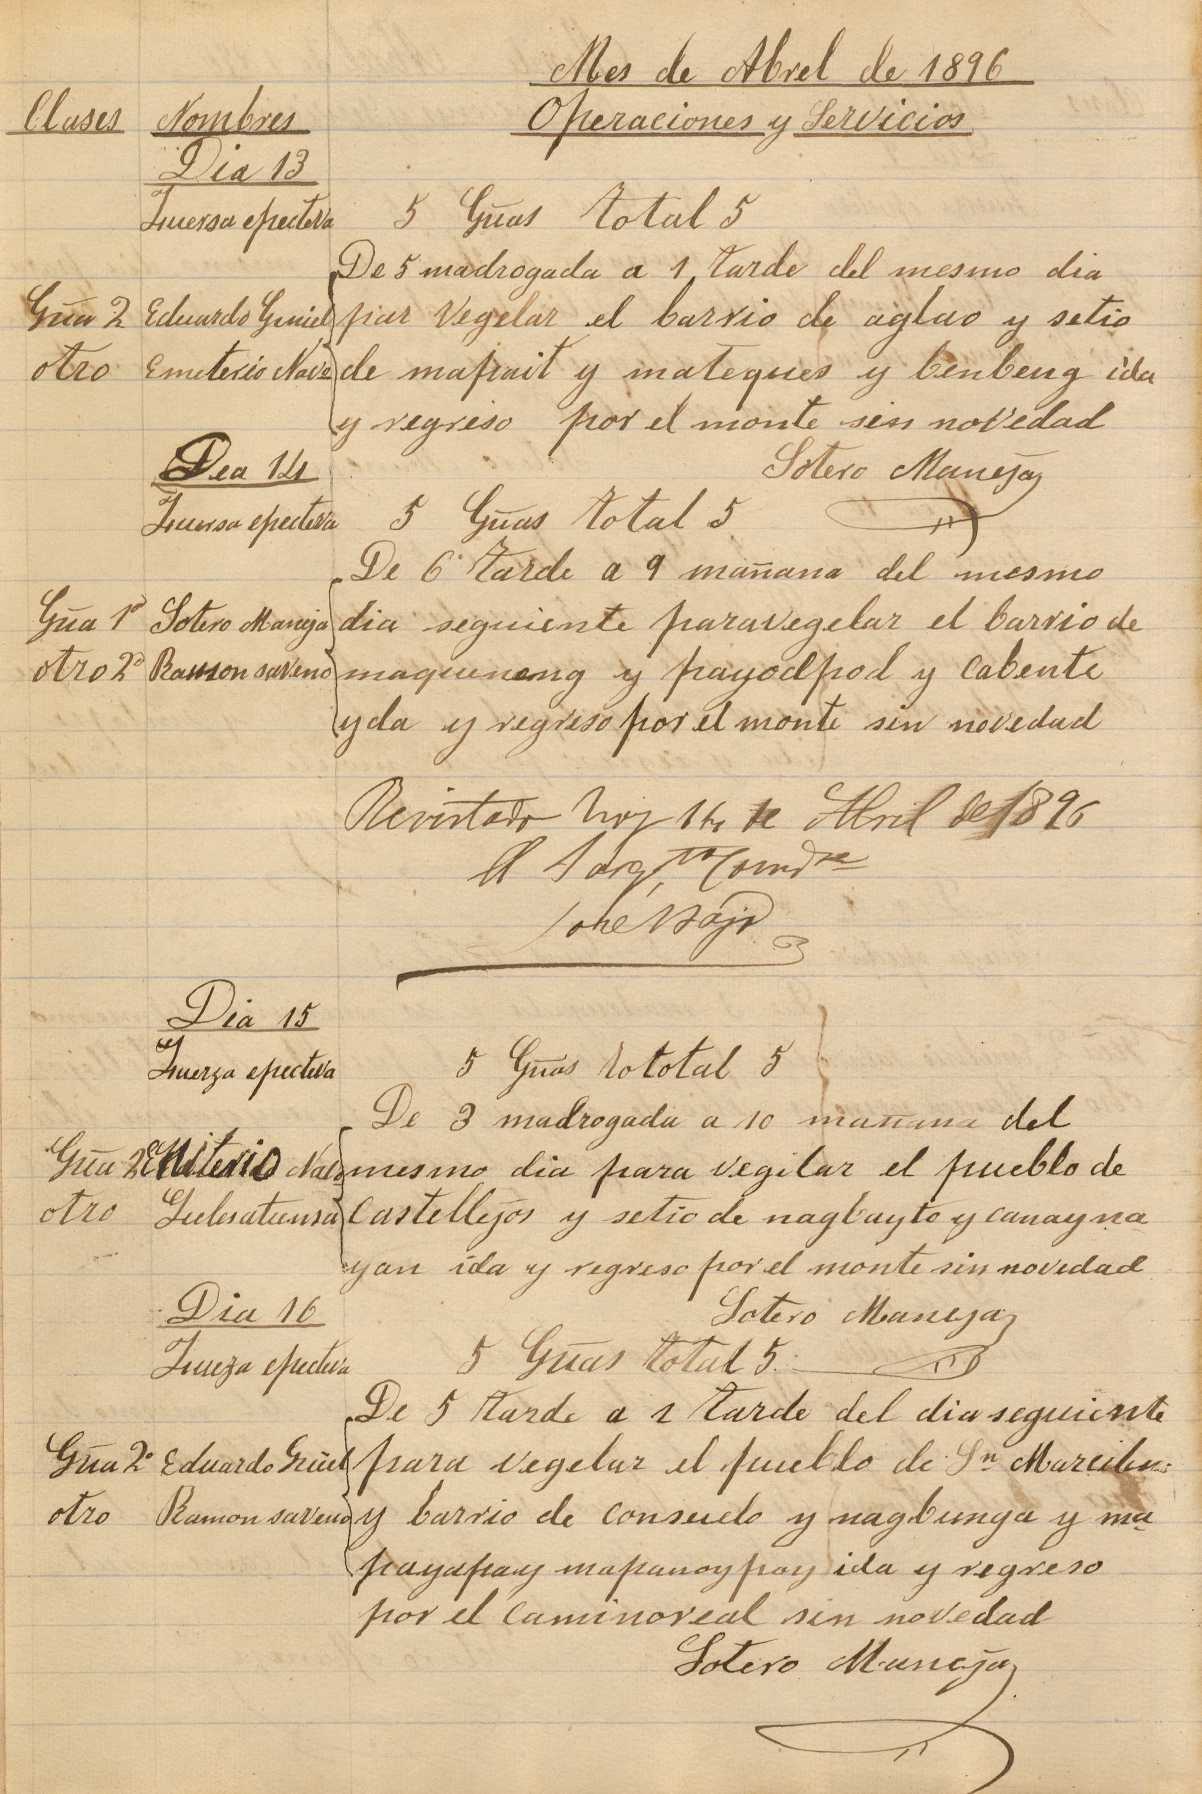 Mes de Abrel de 1896
Clases Nombres Operaciones y Servicios
Dia 13
Fuersa epectiva 5 Gũas total 5
De 5 madrogada a 1 tarde del mesmo dia
Gũa 2 Eduardo par vegelar el barrio de aglao y setio
otro Emeterio de mapait y mateques y benbeng ida
y regriso por el monte sin novedad
Dea 14 Sotero Maneja
Fuersa epectiva 5 Gũas total 5
De 6 tarde a 9 mañana del mesmo
Gũa 1º Sotero Maneja dia seguiente para vegelar el barrio de
otro 2º Ramon saveno y payodpod y Cabente
yda y regreso por el monte sin novedad
Revistado hoy 14 de Abril de 1896
El Sargto Comdte
José
Dia 15
Fuerza epectiva 5 Gũas to total 5
De 3 madrogada a 10 mañana del
Gũa 2 mesmo dia para vegilar el pueblo de
otro Castellejos y setio de nagbayto y canayna
yan ida y regreso por el monte sin novedad
Dia 16 Sotero Maneja
Fueza epectiva 5 Gũas total 5
De 5 tarde a 1 tarde del dia seguiente
Gũa 2º Eduardo para vegelar el pueblo de Sn
otro Ramon saveno y barrio de consuelo y nagbunga y ma
payapay mapanoypoy ida y regreso
por el camino real sin novedad
Sotero Maneja